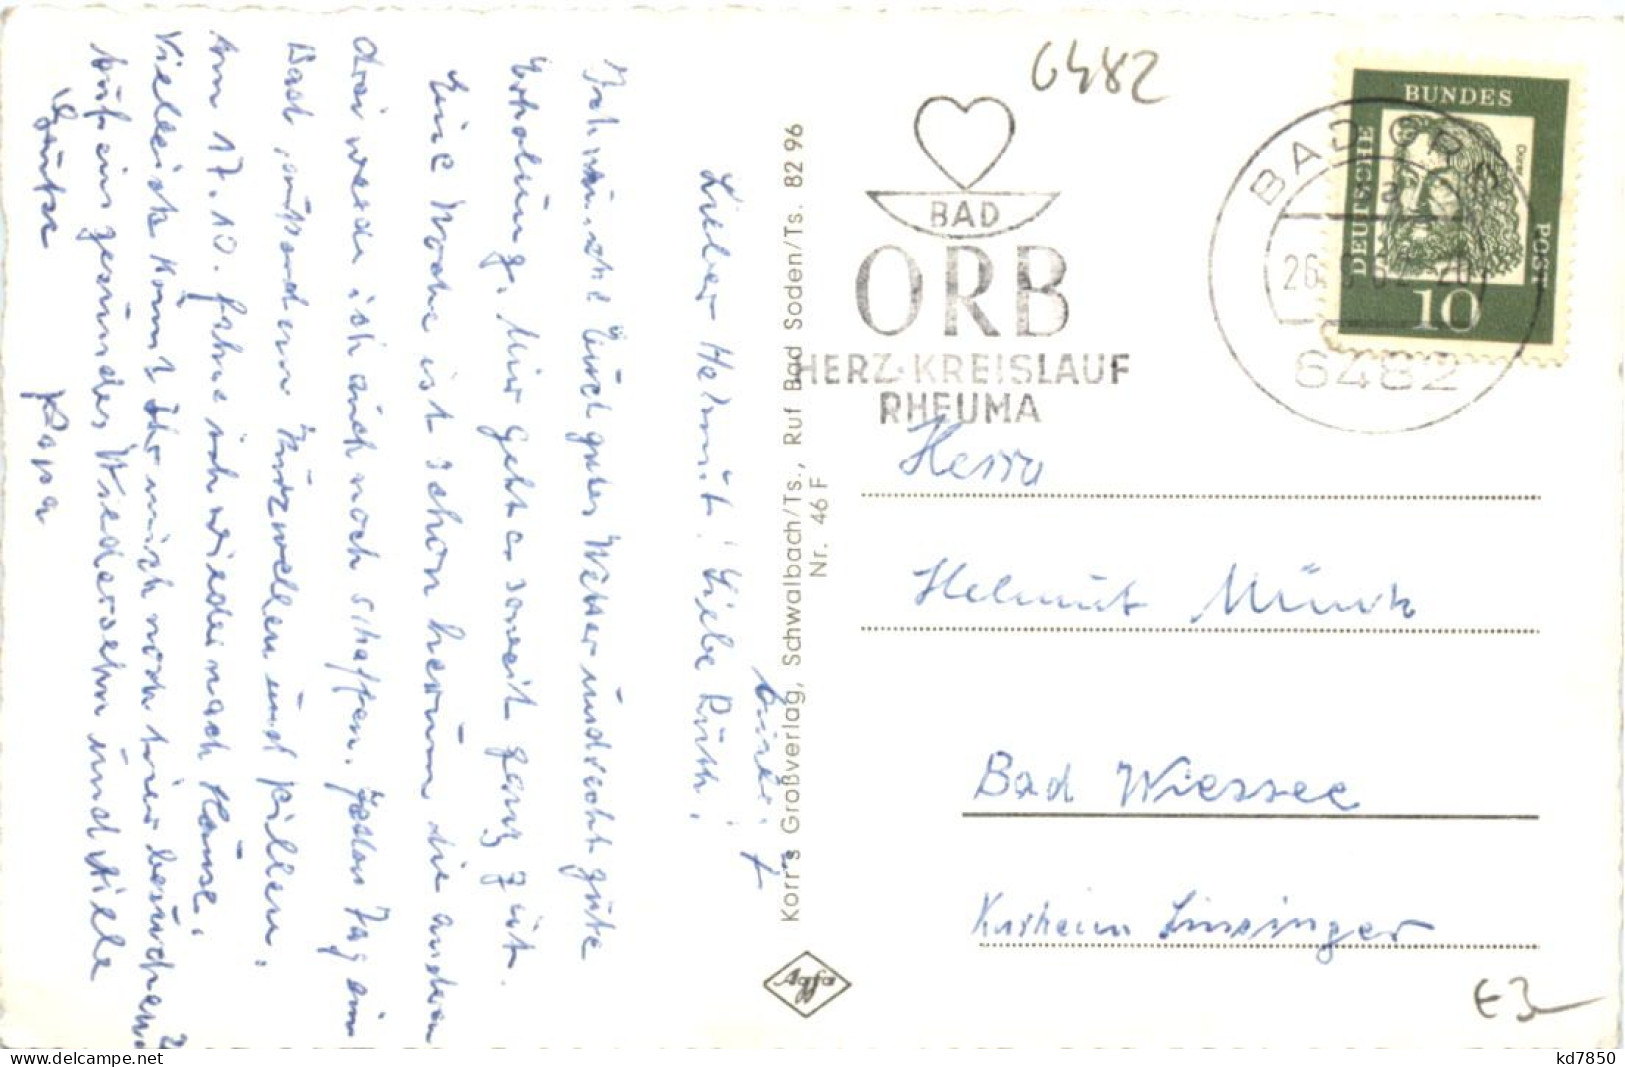 Lieber Helmut! Liebe Ruth!
Ich wünsche Euch gutes Wetter und recht gute
Erholung. Mir geht es soweit ganz gut.
Eine Woche ist schon herum die anderen
drei werde ich auch noch schaffen. Jeden Tag ein
Bad, außerdem Kurzwellen und Pillen.
Am 17.10. fahre ich wieder nach Hause.
Vielleicht kommt Ihr mich noch hier besuchen?
Auf ein gesundes Wiedersehn und viele
Grüße Papa
Korr's Großverlag, Schwalbach/Ts., Ruf Bad Soden/Ts. 82 96
Nr. 46 F
Agfa
6482
BAD
ORB
HERZ·KREISLAUF
RHEUMA
BAD ORB
a
6482
DEUTSCHE BUNDES POST
Dürer
10
Herrn
Helmut
Bad Wiessee
Kurheim Linsinger
€3
kd7850